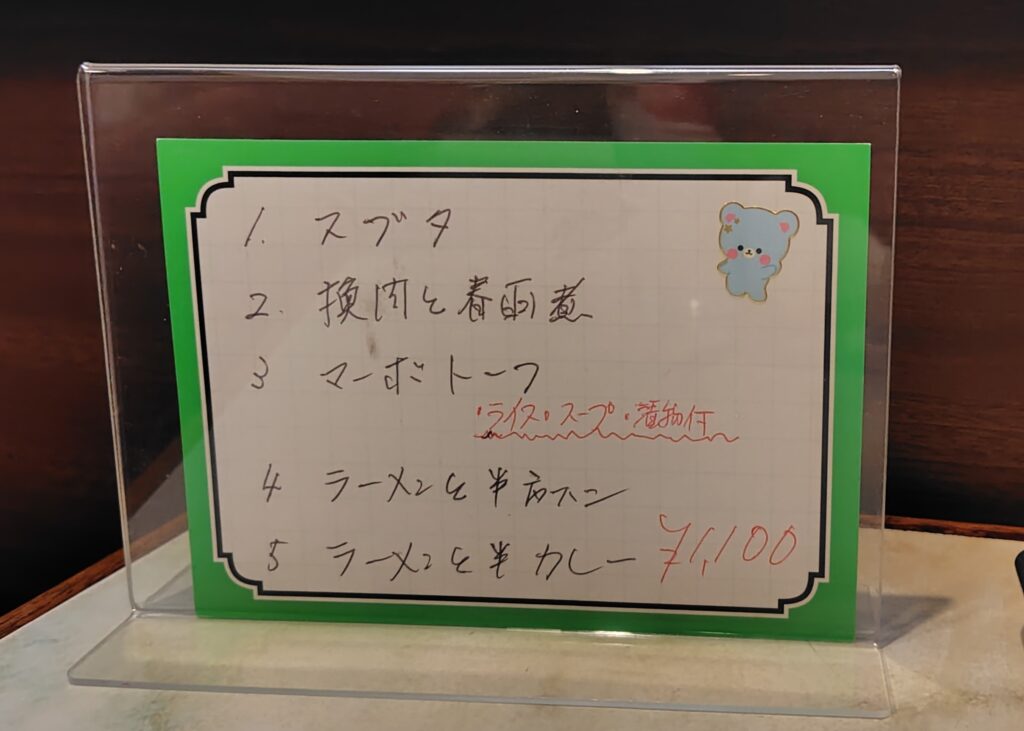 1. スブタ
2. 挽肉と春雨煮
3 マーボトーフ
・ライス・スープ・漬物付
4 ラーメンと半
5 ラーメンと半カレー ¥1,100